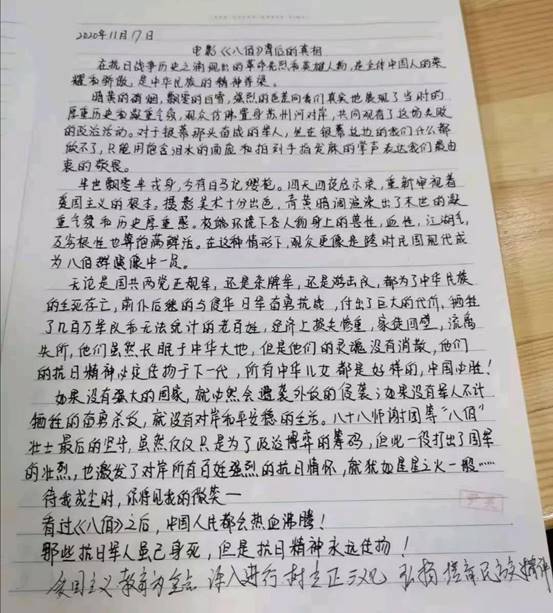 2020年11月17日
电影《八佰》背后的真相
在抗日战争历史之涌现出的革命先烈和英雄人物,在主体中国人的荣
耀和骄傲,是中华民族的精神脊梁。
暗黄的硝烟,飘零的白雪,强烈的色差向我们真实地展现了当时的
厚重历史和凝重气氛,观众仿佛置身苏州河对岸,共同观看了这场失败
的政治活动。对于银幕那头奋战的军人,坐在银幕这边的我们什么都
做不了,只能用饱含泪水的面庞和拍到手指发麻的掌声表达我们最由
衷的敬畏。
半世飘零半戎身,今有白马记缨枪。四天四夜启示录,重新审视着
英国主义的根本。摄影美术十分出色,青黄暗调渲染出了末世的凝
重气氛和历史厚重感。极端环境下各人物身上的兽性,血性,江湖气
及劣根性也算饱满鲜活。在这种情形下,观众更像是跨时民国现代成
为八佰群雄像中一员。
无论是国共两党正规军,还是杂牌军,还是游击民,都为了中华民族
的生死存亡,前仆后继的与侵华日军奋勇抗战,付出了巨大的代价,牺牲
了几百万军民和无法统计的老百姓,经济上损失惨重,家徒四壁,流离
失所,他们虽然长眠于中华大地,但是他们的灵魂没有消散,他们
的抗日精神必定传扬于下一代,所有中华儿女都是好样的,中国必胜!
如果没有强大的国家,就必然会遭袭外敌的侵袭;如果没有军人不计
牺牲的奋勇杀敌,就没有对岸和平安稳的生活。八十八师谢团等"八佰"
壮士最后的坚守,虽然仅仅只是为了政治博弈的筹码,但此一役打出了国军
的壮烈,也激发了对岸所有百姓强烈的抗日情怀,就犹如星星之火一般……
待我成尘时,你将见我的微笑—
看过《八佰》之后,中国人民都会热血沸腾!
那些抗日军人虽已身死,但是抗日精神永远传扬!
爱国主义教育为重点 深入进行树立正三观 弘扬培育民族精神